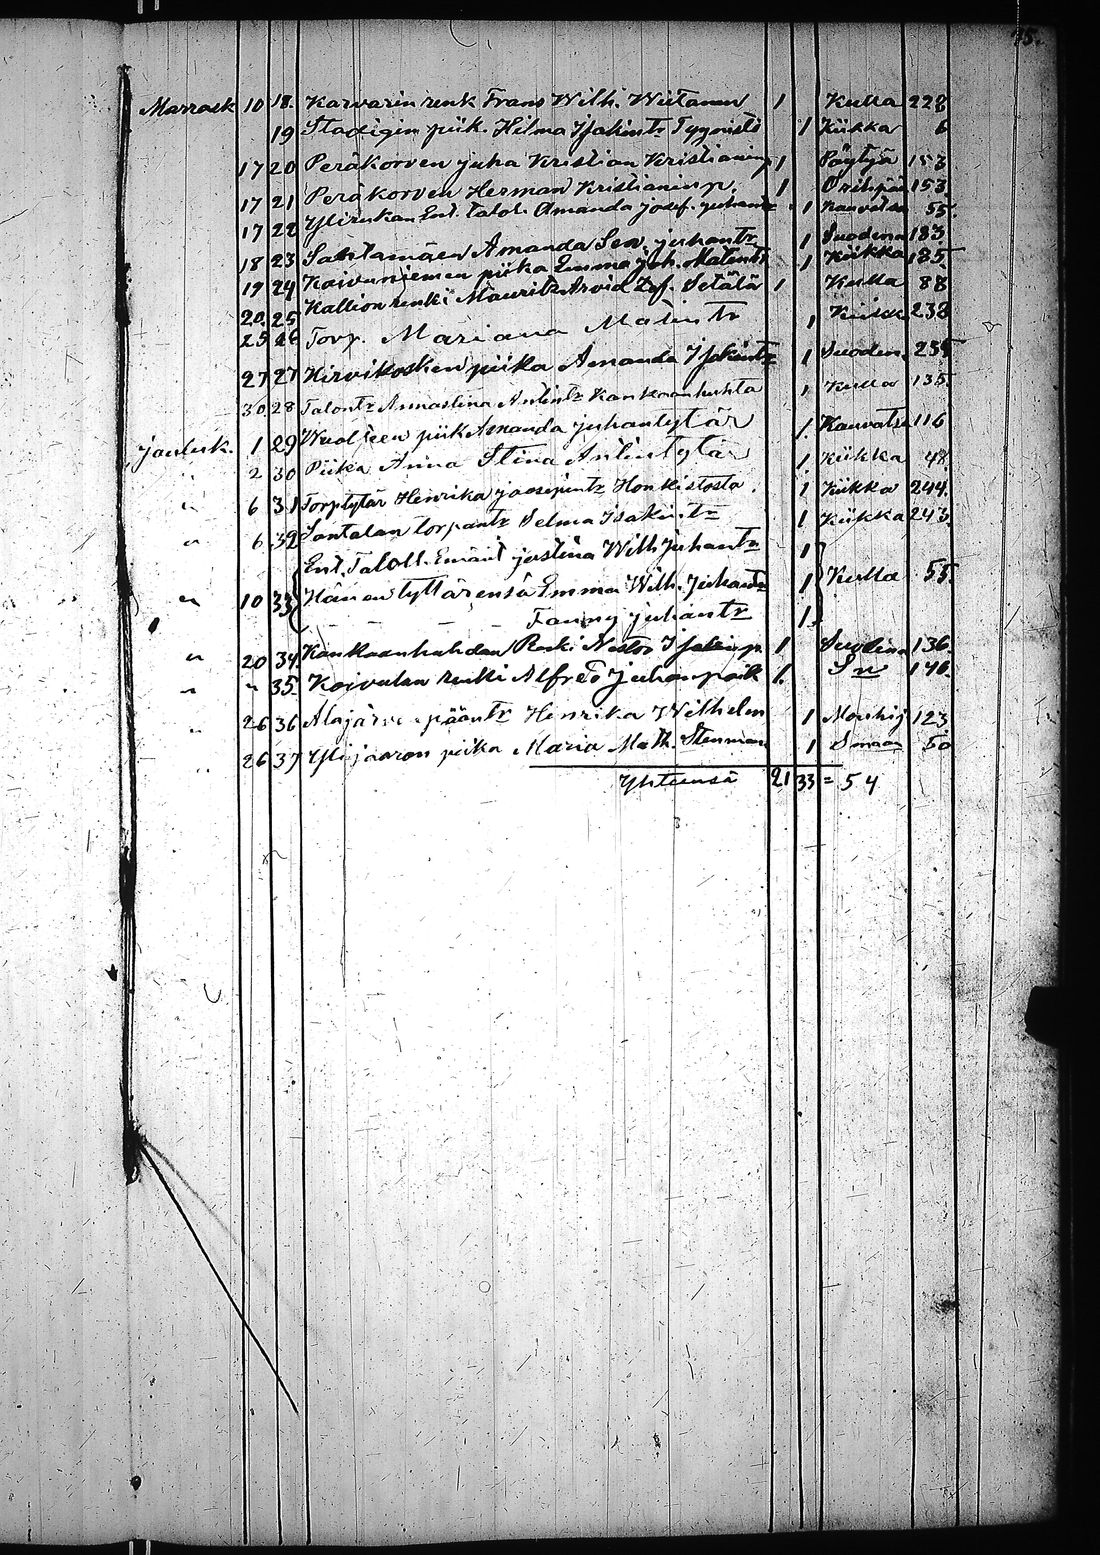 75.
Marrask 10 18. Karvarin renk Frans Wilh. Wiitanen 1 Kulla 228
19 Stadigin piik. Hilma Isakintr Tyyristi 1 Kiikka 6
17 20 Peräkorven juha Kristian Kristianinp 1 Pöytyä 153
17 21 Peräkorven Herman Kristianinp. 1 Oripää 153
17 22 Ylirukan Ent. Talol. Amanda josef. juhantr 1 Kauvatsa 55.
18 23 Sahlamäen Amanda Sev. juhantr 1 Suodenn 183
19 24 Koivuniemen piika Emma Joh. Matintr 1 Kiikka 185
20. 25 Kallion renki Mauritz Arvid Jos. Setälä 1 Kulla 88
25 26 Torp. Mariana Matintr 1 Kiikk 238
27 27 Hirvikosken piika Amanda Isakintr 1 Suoden. 235
30 28 Talontr Annastina Antintr Kankaanhuhta 1 Kulla 135.
jouluk. 1 29 piik Amanda juhantytär 1. Kauvatsa 116
" 2 30 Piika Anna Stina Antintytär 1. Kiikka 48.
" 6 31 Torptytär Henrika joosepintr Honkistosta. 1 Kiikka 244.
" 6 32 Santalan torpantr Selma Isakintr 1 Kiikka 243.
Ent. Taloll. Emänt justina Wilh juhantr 1
" 10 33 Hänen tyttärensä Emma Wilh. Juhantr 1 Kulla 55.
- - - Fanny juhantr 1.
" 20 34. Kankaanhuhdan Renki Nestor Isakinp. 1 Suodenn 136.
" " 35. Koivulan renki Alfred juhanpoik 1. Sn 140.
" 26 36 Alajärvenpääntr Henrika Wilhelm 1 Mouhij 123
" 26 37 Ylijaaron piika Maria Math. Stenman 1 Smaa 50
Yhteensä 21 33 = 54